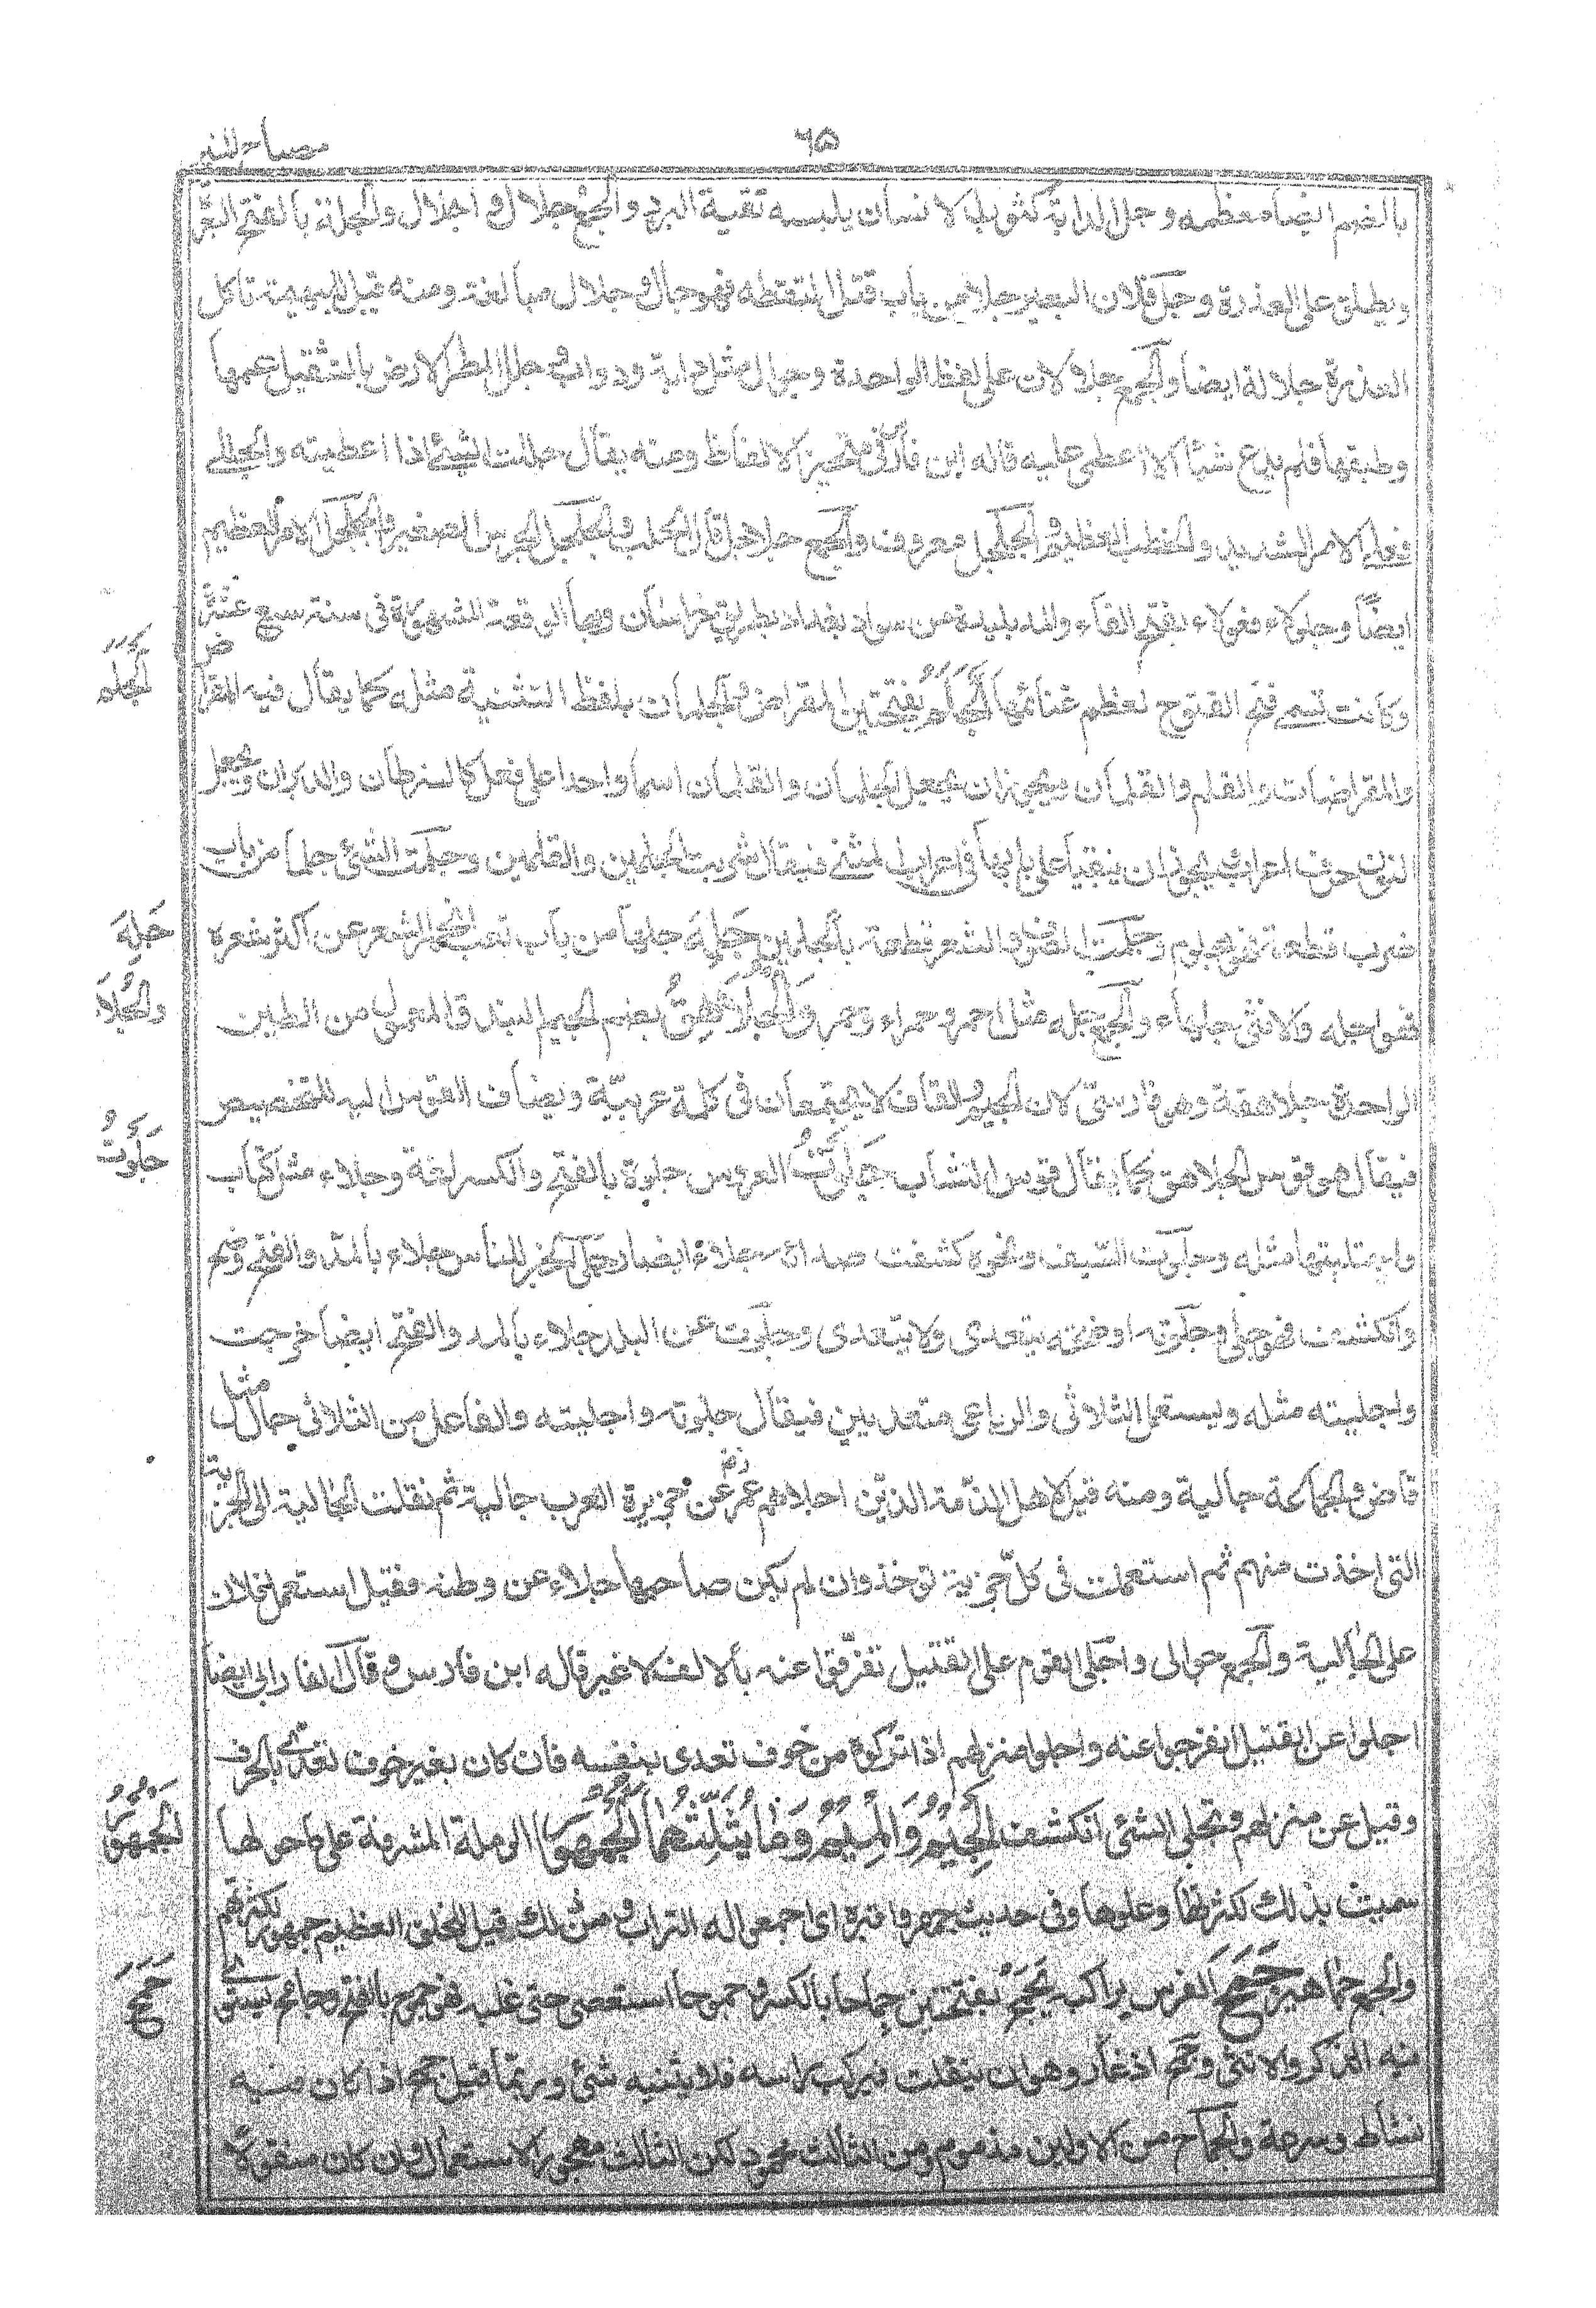 ٦٥
مصباح المنير
بالضم ايضا معظمه وجل الدابة كثوب الانسان يلبسه تقية البرد والجمع جلال واجلال والجلة بالفتح البعر
ويطلق على العذرة وجل فلان البعير جلا من باب قتل التقطه فهو جال وجلال مبالغة ومنه قيل للبهيمة تاكل
العذرة جلالة ايضا والجمع جلالات على لفظ الواحدة وجوال مثل دابة ودواب وجلل المطر الارض بالتثقيل عمها
وطبقها فلم يدع شيئا الا غطى عليه قاله ابن فارس في متخير الالفاظ ومنه يقال جللت الشئ اذا غطيته والجلى
فعلى الامر الشديد والخطب العظيم والجلجل معروف والجمع جلاجل والجلجل الجرس الصغير والجلجل الامر العظيم
ايضا وجلولاء فعولاء بفتح الفاء والمد بليدة من سواد بغداد بطريق خراسان وبها الوقعة المشهورة في سنة سبع عشرة
وكانت تسمى فتح الفتوح لعظم غنائمها الجلم بفتحتين المقراض والجلمان بلفظ التثنية مثله كما يقال فيه المقراض
الجلم
والمقراضان والقلم والقلمان ويجوز ان يجعل الجلمان والقلمان اسما واحدا على فعلان كالسرطان والدبران ويجعل
النون حرف اعراب ويجوز ان يبقيا على بابهما في اعراب المثنى فيقال شريت الجلمين والقلمين وجلمت الشئ جلما من باب
ضرب قطعته فهو مجلوم وجلمت الصوف والشعر قطعته بالجلمين جله جلها من باب تعب انحسر الشعر عن اكثر شعره
جله
فهو اجله والانثى جلهاء والجمع جله مثل احمر وحمراء وحمر والجلاهق بضم الجيم البندق المعمول من الطين
والجلا
الواحدة جلاهقة وهو فارسى لان الجيم والقاف لا يجتمعان في كلمة عربية ويضاف القوس اليه للتخصيص
فيقال هو قوس الجلاهق كما يقال قوس النشاب جلوت العروس جلوة بالفتح والكسر لغة وجلاء مثل كتاب
جلوت
واجتليتها مثله وجلوت السيف ونحوه كشفت صداه جلاء ايضا وجلى الخبر للناس جلاء بالمد والفتح وضح
وانكشف فهو جلى وجلوته اوضحته يتعدى ولا يتعدى وجلوت عن البلد جلاء بالمد والفتح ايضا خرجت
واجليت مثله ويستعمل الثلاثى والرباعى متعديين فيقال جلوته واجليته والفاعل من الثلاثى جال مثل
قاض والجماعة جالية ومنه قيل لاهل الذمة الذين اجلاهم عمر رض عن جزيرة العرب جالية ثم نقلت الجالية الى الجزية
التى اخذت منهم ثم استعملت فى كل جزية تؤخذ وان لم يكن صاحبها جلاء عن وطنه فقيل استعمل فلان
على الجالية والجمع جوالى واجلى القوم على القتيل تفرقوا عنه بالالف لا غير قاله ابن فارس وقال الفارابى ايضا
اجلوا عن القتيل انفرجوا عنه واجلوا منزلهم اذا تركوه من خوف تعدى بنفسه فان كان بغير خوف تعدى بالحرف
وقيل عن منزلهم وتجلى الشئ انكشف الجيم والميم وما يثلثهما الجمهور الرملة المشرفة على ما حولها
الجمهور
سميت بذلك لكثرتها وعلوها وفى حديث جمهروا قبره اى اجمعوا له التراب ومن ذلك قيل للخلق العظيم جمهور لكثرتهم
والجمع جماهير جمح الفرس براكبه يجمح بفتحتين جماحا بالكسر وجموحا استعصى حتى غلبه فهو جموح بالفتح وجامح يستوى
جمح
فيه المذكر والانثى وجمح اذا عار وهو ان ينفلت فيركب راسه فلا يثنيه شئ وربما قيل جمح اذا كان فيه
نشاط وسرعة والجماح من الاولين مذموم ومن الثالث محمود لكن الثالث مهجور الاستعمال وان كان منقولا